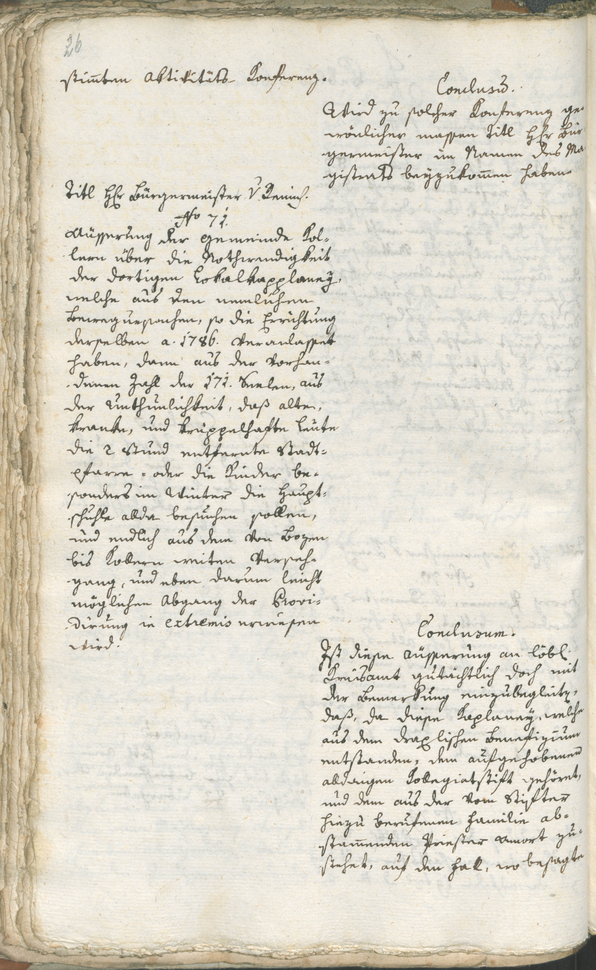 26
stimmten Aktivitäts-Konferenz.
Conclusum.
Wird zu solcher Konferenz ge-
wönlicher massen Titl Hhr Bür
germeister im Namen des Ma
gistrats beyzukommen haben.
Titl Hhr Bürgermeister v
No 71.
Äusserung der Gemeinde Kol-
lern über die Nothwendigkeit
der dortigen Lokalkapplaney,
welche aus den nemlichen
Bewegursachen, so die Errichtung
derselben a. 1786. veranlasset
haben, dann aus der vorhan-
denen Zahl der 171. Seelen, aus
der Unthunlichkeit, daß alte,
kranke, und krüppelhafte Leute
die 2 Stund entfernte Stadt-
pfarre- oder die Kinder be-
sonders im Winter die Haupt-
schuhle allda besuchen sollen,
und endlich aus dem von Bozen
bis Kollern weiten Verseh-
gang, und eben darum leicht
möglichen Abgang der Provi-
dirung in extremis erwiesen
wird.
Conclusum.
Ist diese Äusserung an löbl.
Kreisamt gutächtlich doch mit
der Bemerkung einzubegleiten,
daß, da diese Kaplaney, welche
aus dem Benefizium
entstanden, dem aufgehobenen
alldaigen Kollegiatstift gehöret,
und dem aus der vom Stifter
hiezu berufenen Familie ab-
stammenden Priester Amort zu-
stehet, auf den Fall, wo besagte